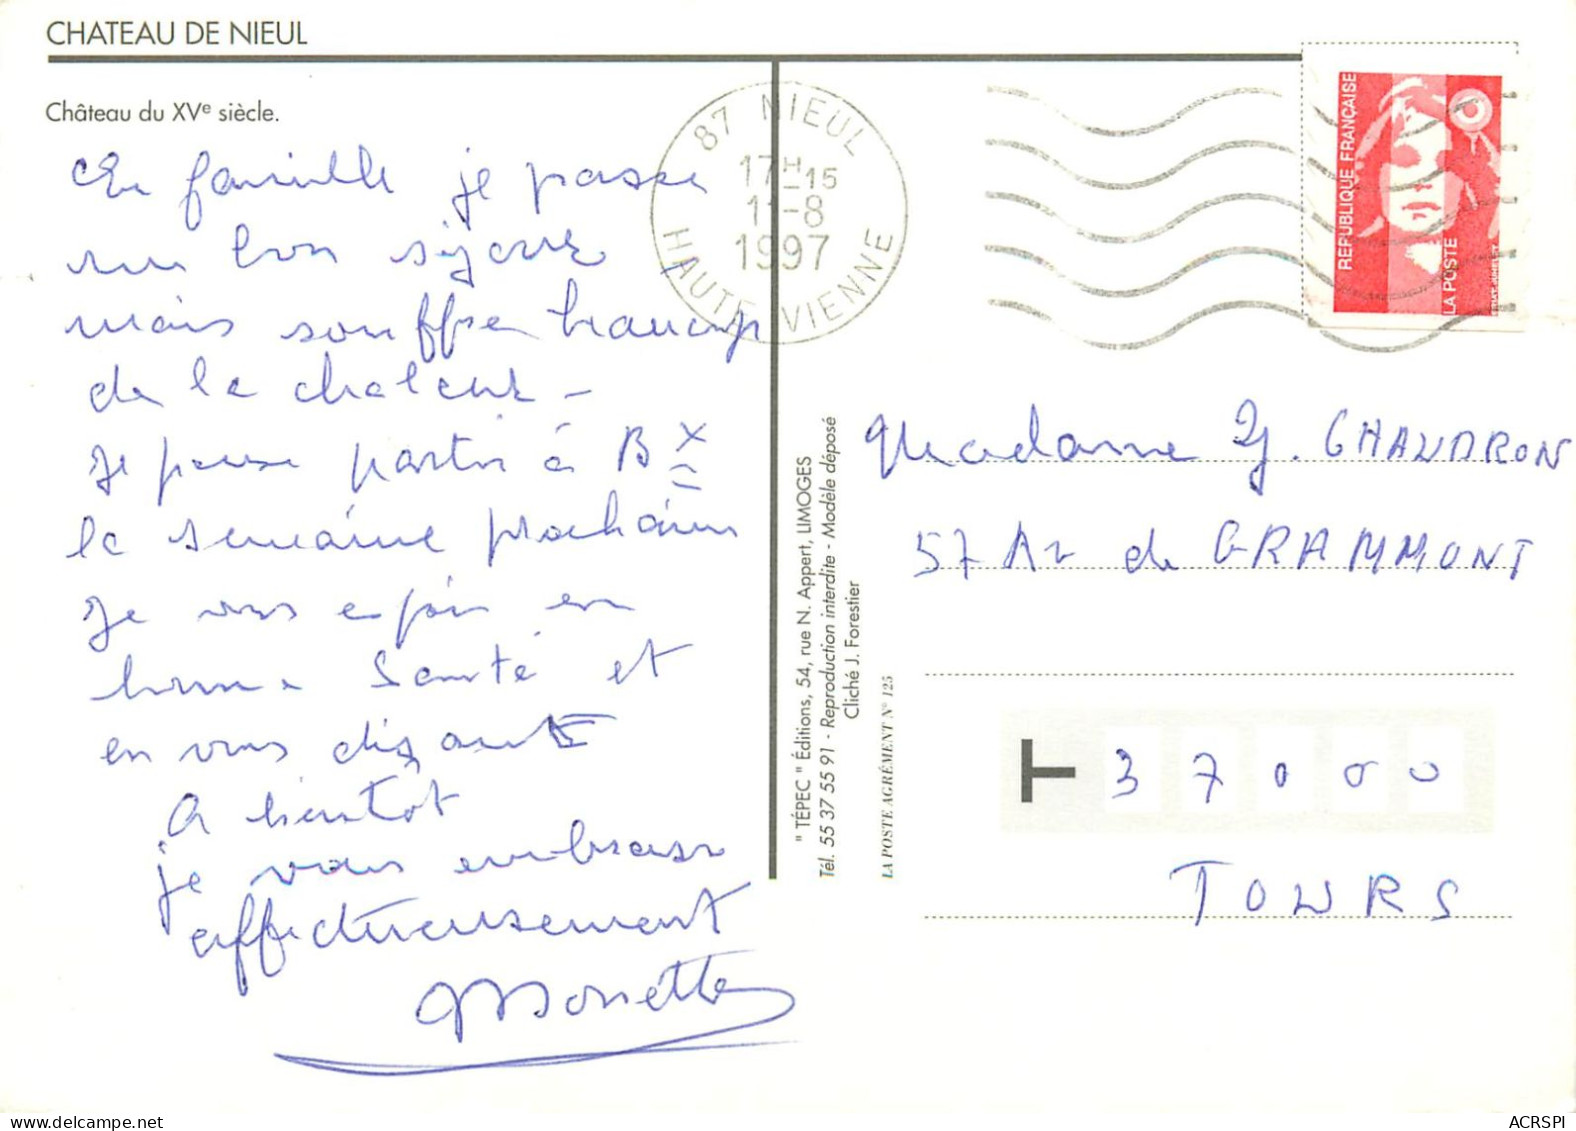 CHATEAU DE NIEUL
Château du XVe siècle.
En famille je passe
un bon séjour
mais souffre beaucoup
de la chaleur -
Je pense partir à Bx
la semaine prochaine
Je vous espère en
bonne Santé et
en vous disant
A bientôt
je vous embrasse
affectueusement
87 NIEUL
17H-15
1-8
1997
HAUTE VIENNE
REPUBLIQUE FRANÇAISE
LA POSTE
" TÉPEC " Éditions, 54, rue N. Appert, LIMOGES
Tél. 55 37 55 91 - Reproduction interdite - Modèle déposé
Cliché J. Forestier
LA POSTE AGRÉMENT N° 125
Madame Y. CHAUDRON
57 Av de GRAMMONT
T 37000
TOURS
ACRSPI